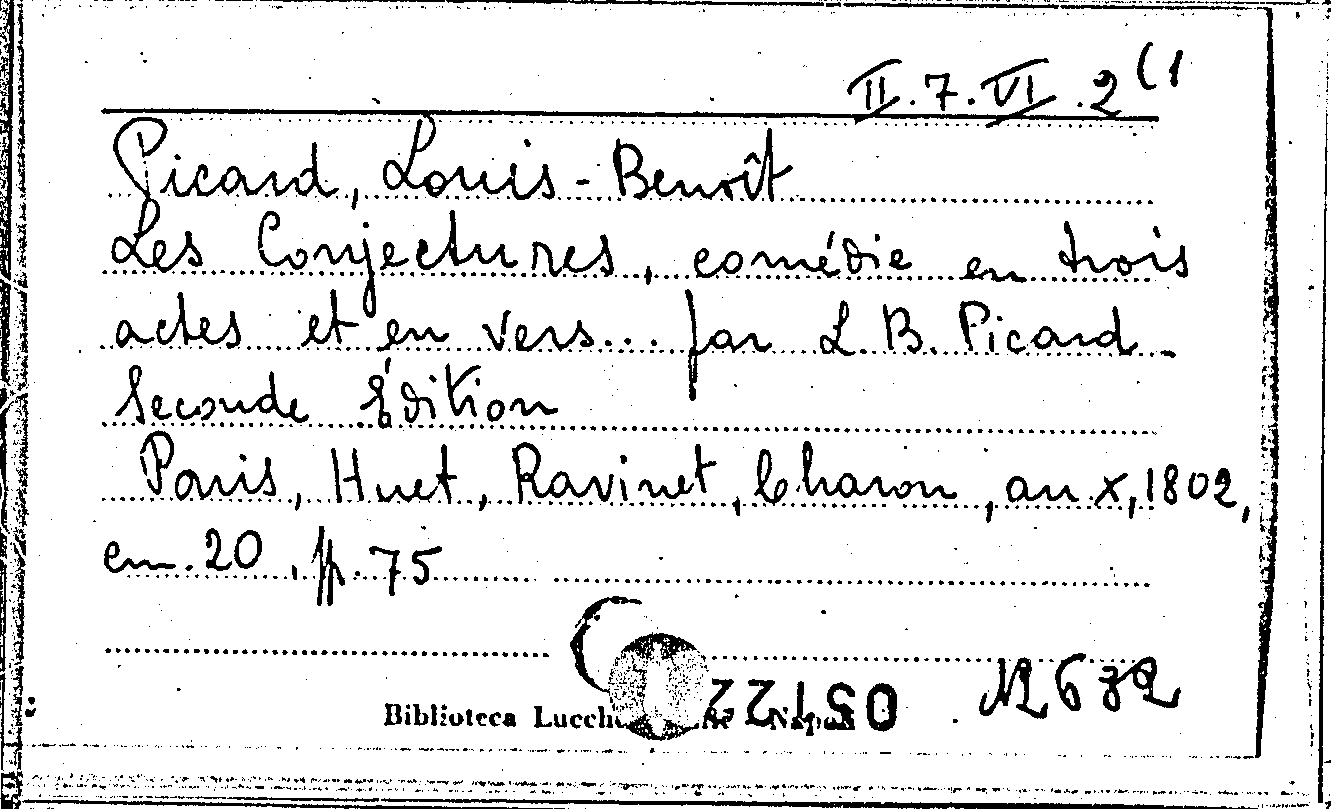 II.7.VI.2(1
Picard, Louis-Benoît
Les Conjectures, comédie en trois
actes et en vers... par L. B. Picard.
Seconde Édition
Paris, Huet, Ravinet, Charon, an X, 1802,
cm. 20, pp. 75
Biblioteca